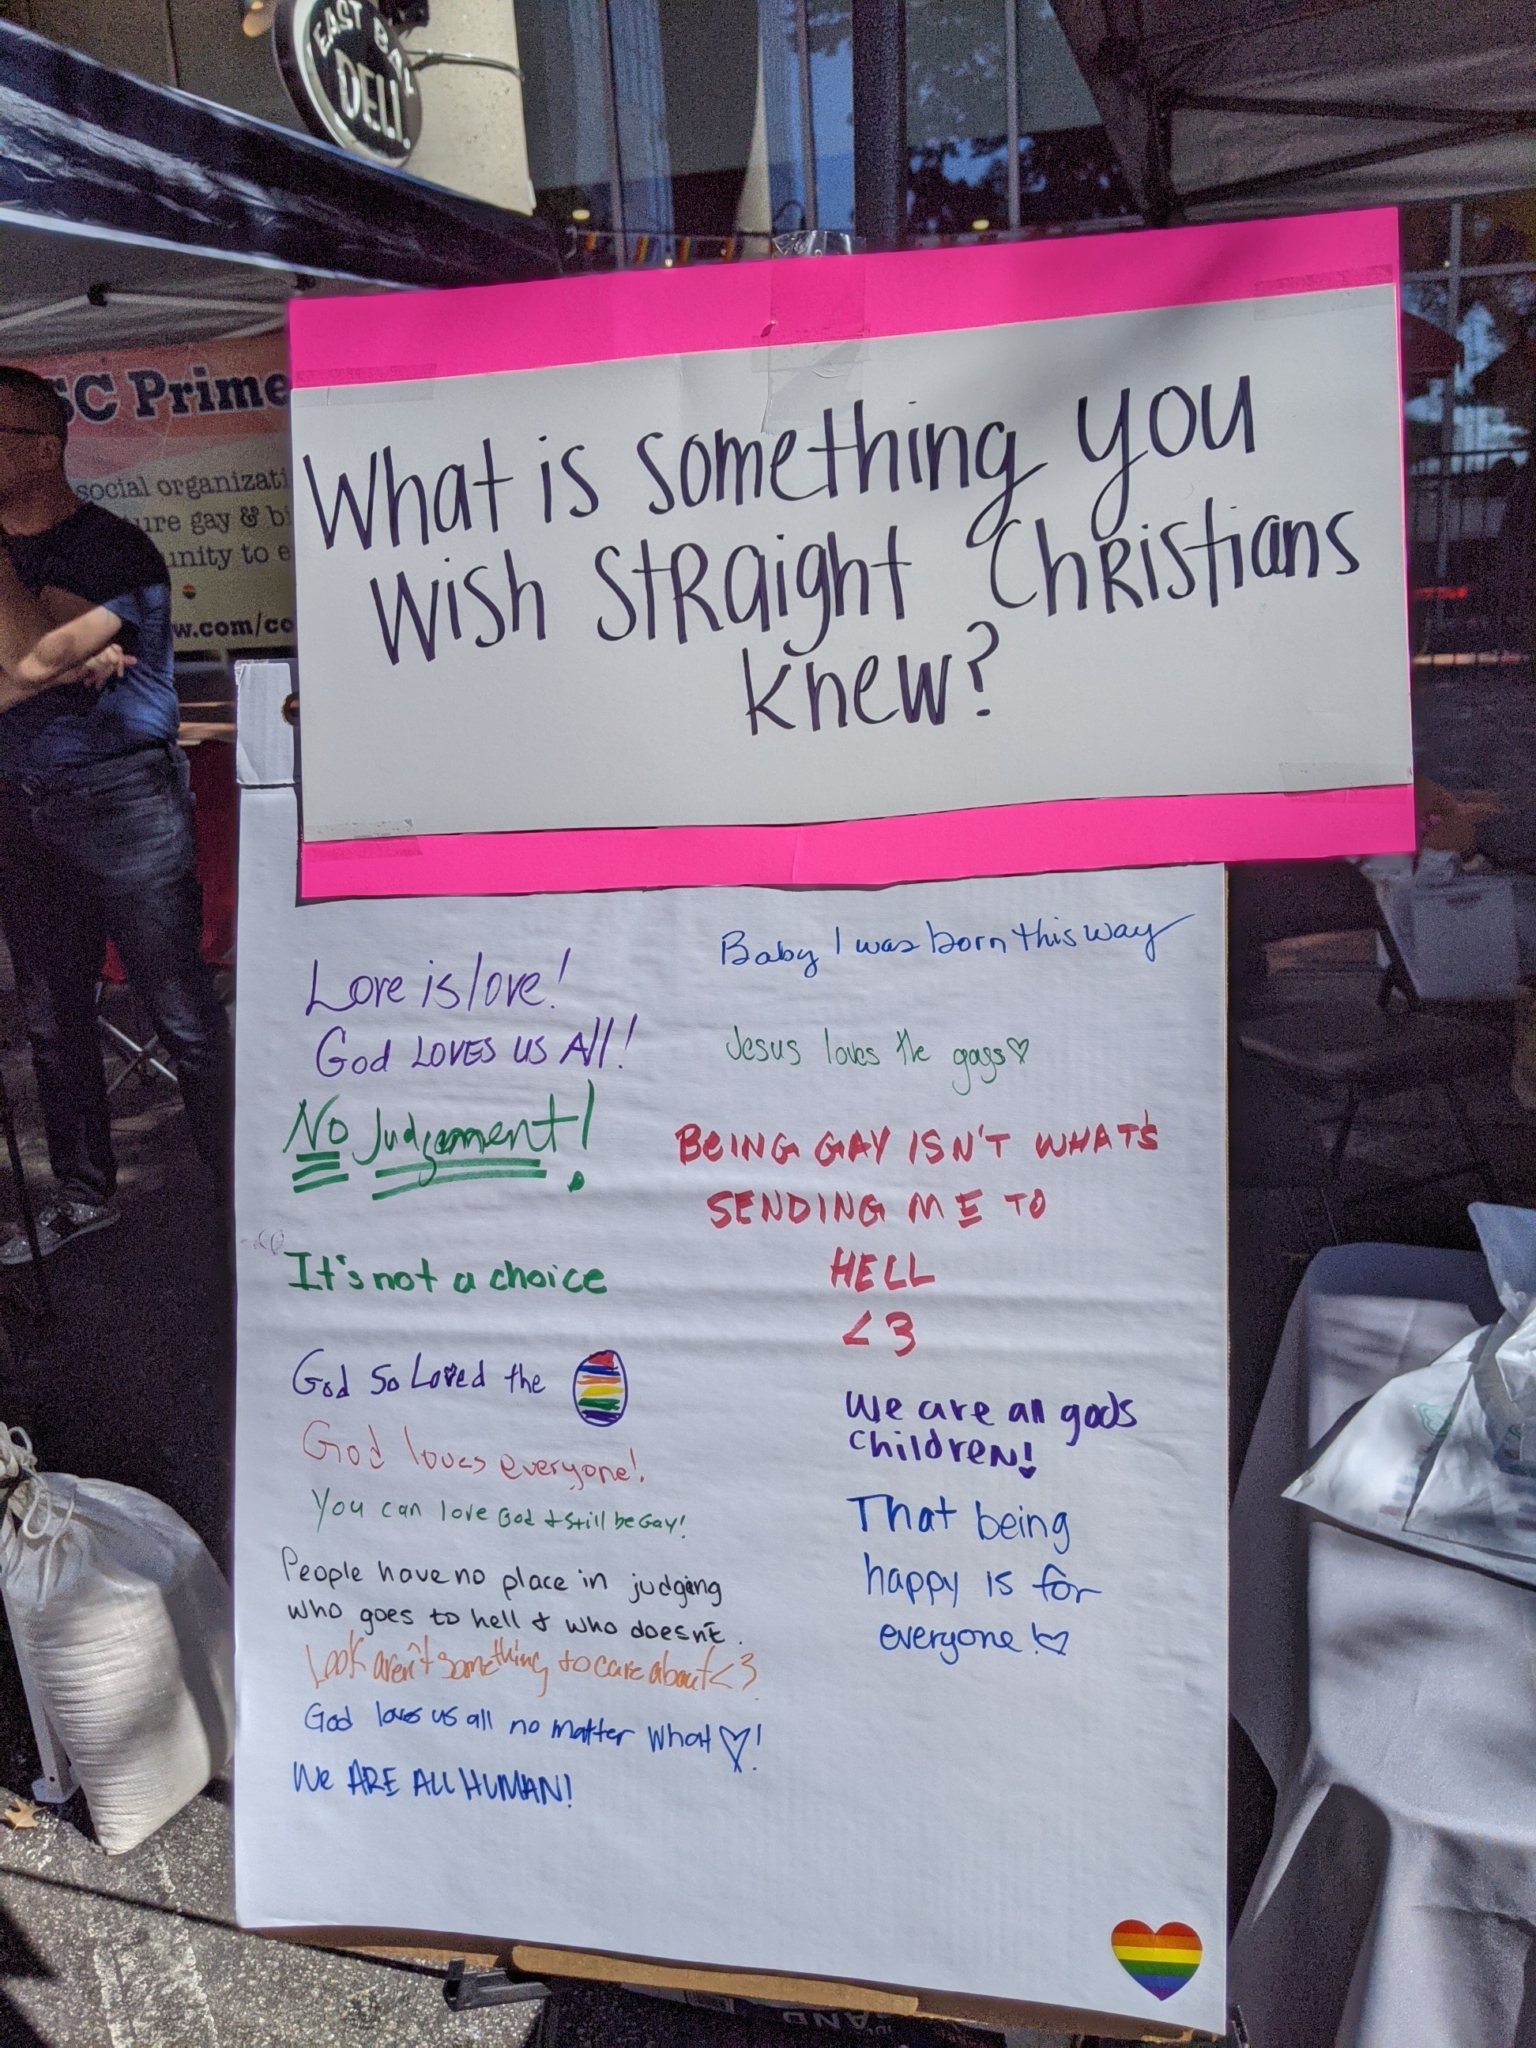 EAST BAY
DELI.
SC Prime
social organizati
ture gay & bi
unity to e
w.com/co
What is something you
wish straight Christians
knew?
Love is love!
God LOVES US All!
No Judgement!
It's not a choice
God So Loved the
God loves everyone!
You can love God & still be Gay!
People have no place in judging
who goes to hell & who doesn't.
Look aren't something to care about <3
God loves us all no matter what ♡!
We ARE ALL HUMAN!
Baby I was born this way
Jesus loves the gays ♡
BEING GAY ISN'T WHAT'S
SENDING ME TO
HELL
<3
We are all gods
children!
That being
happy is for
everyone! ♡